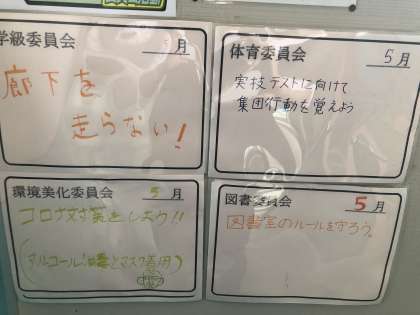 学級委員会
月
廊下を
走らない!
体育委員会
5月
実技テストに向けて
集団行動を覚えよう
環境美化委員会
5月
コロナ対策をしよう!!
(アルコール消毒とマスク着用)
図書委員会
5月
図書室のルールを守ろう。